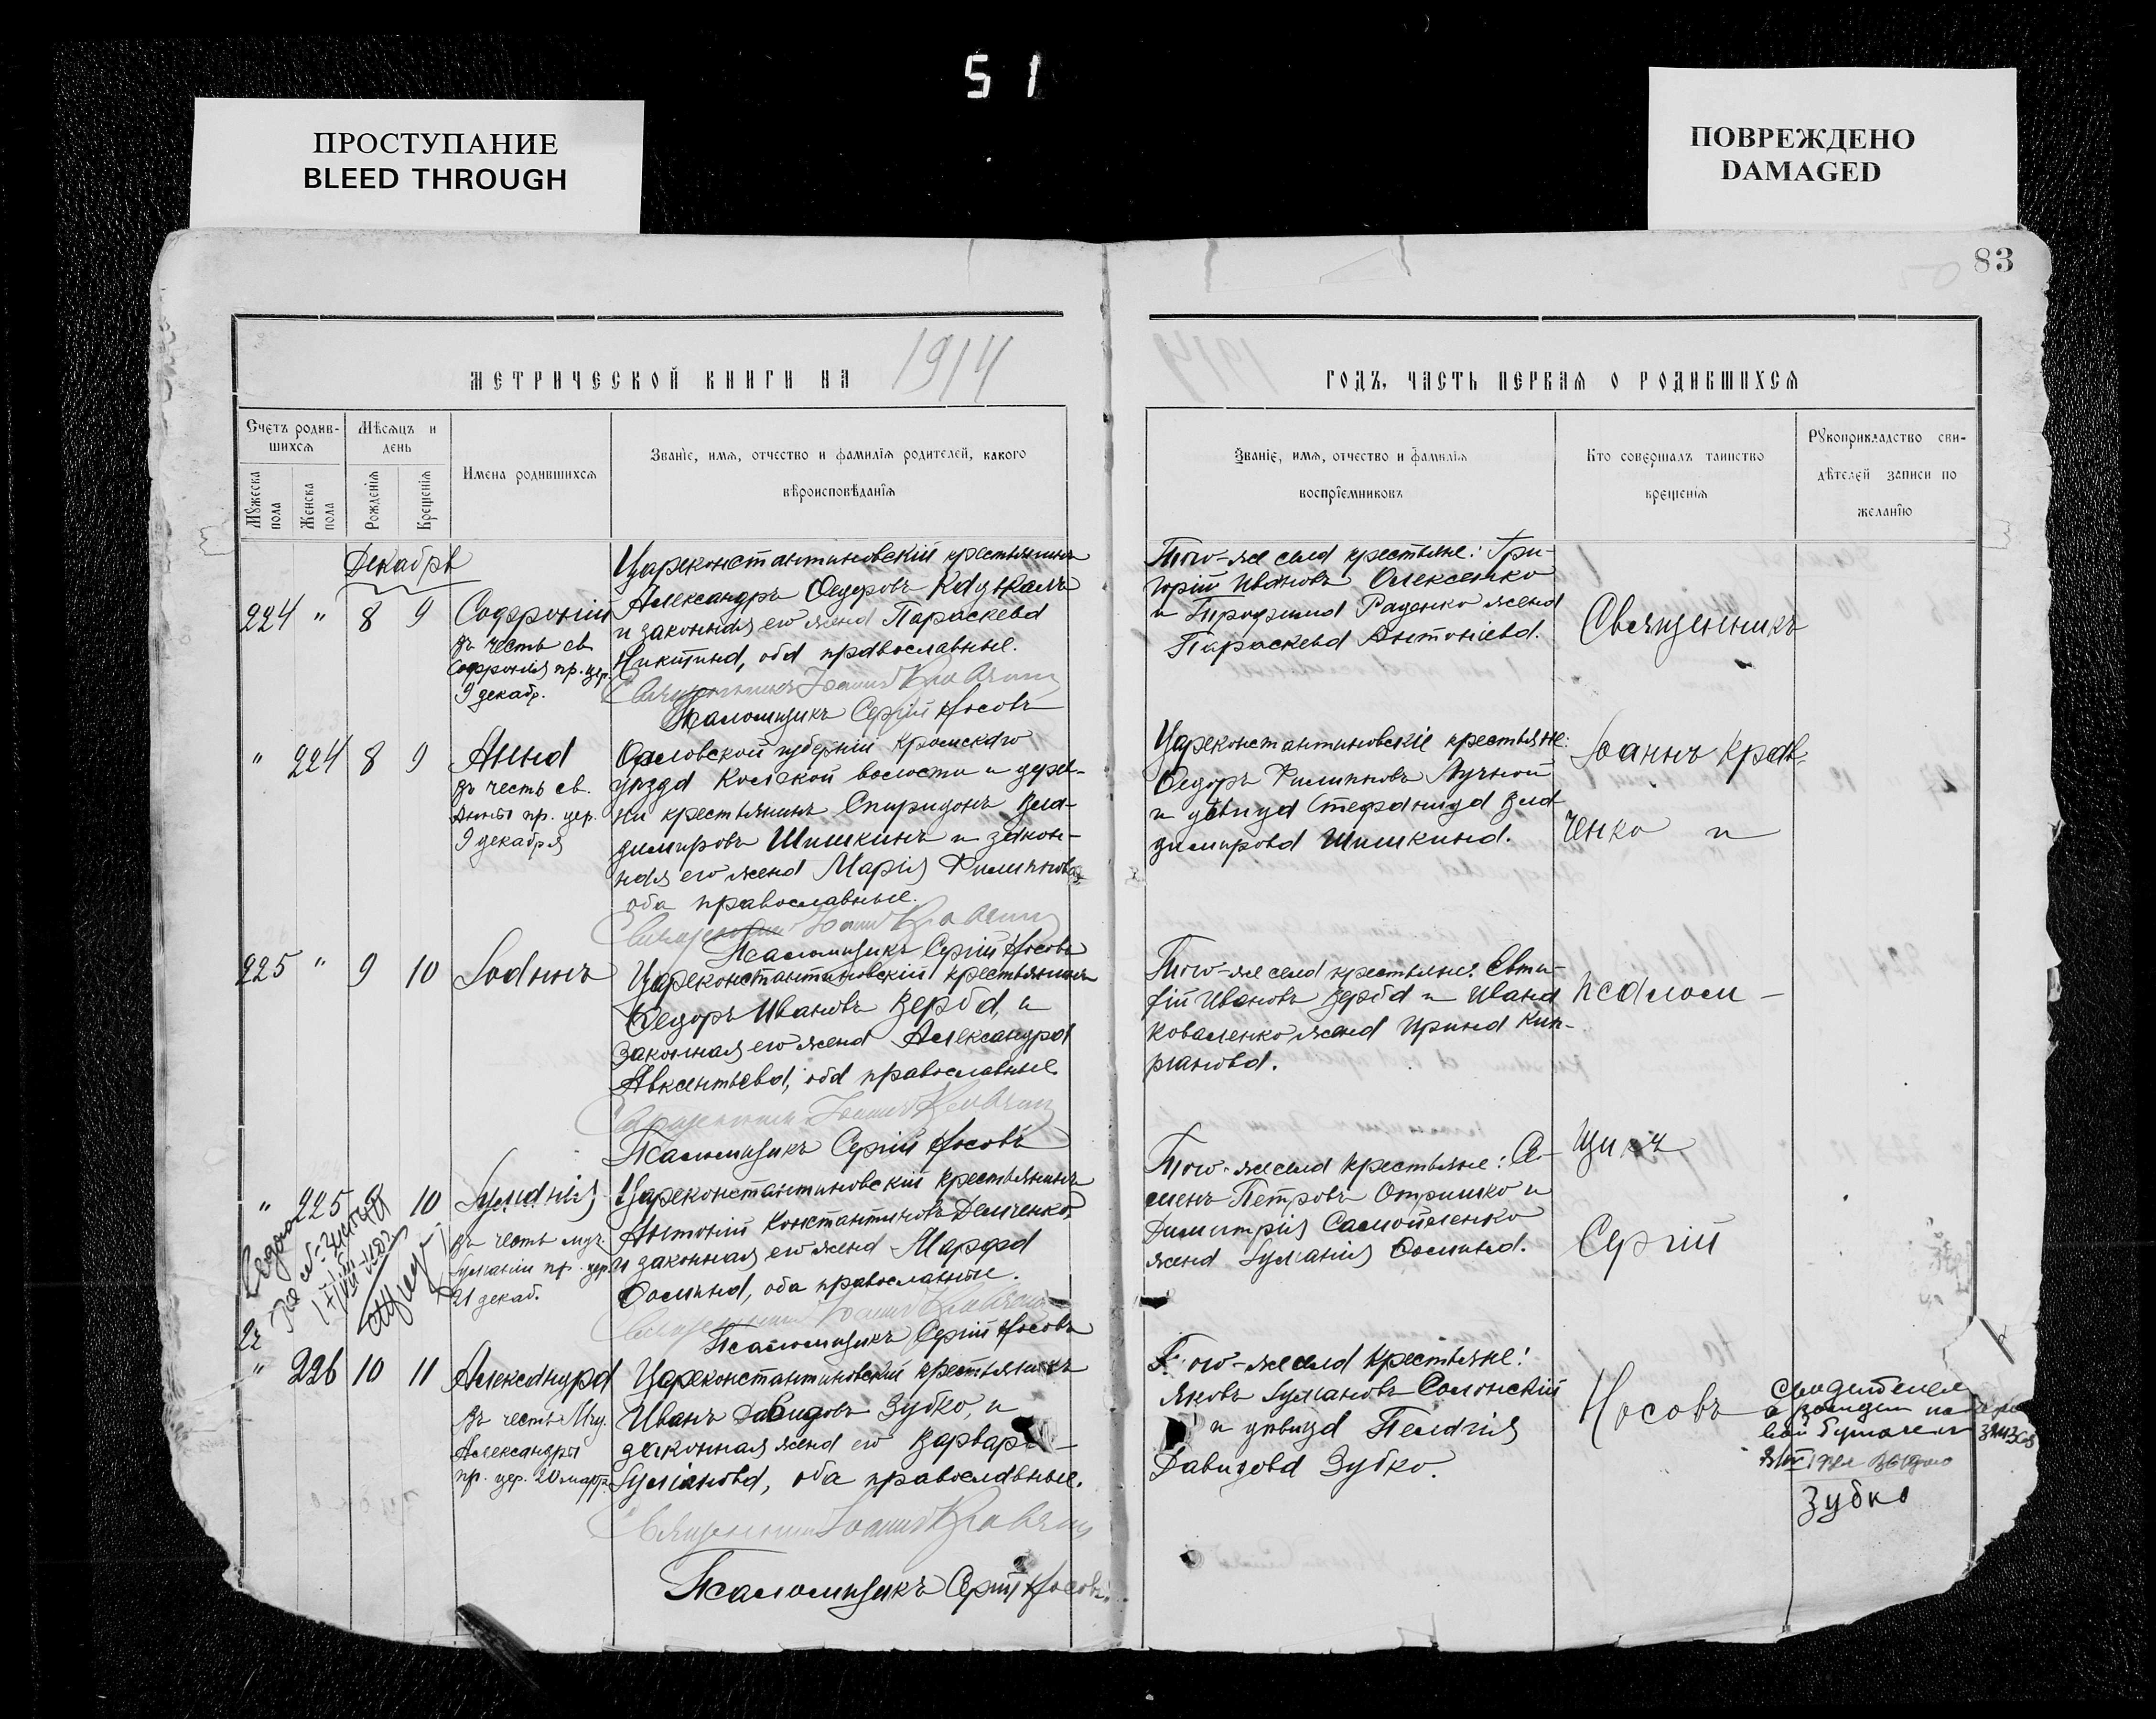 51
ПРОСТУПАНИЕ
BLEED THROUGH
ПОВРЕЖДЕНО
DAMAGED
83
МЕТРИЧЕСКОЙ КНИГИ НА 1914
ГОДЪ, ЧАСТЬ ПЕРВАЯ О РОДИВШИХСЯ
Счетъ родив-
шихся
Мужеска пола
Женска пола
Мѣсяцъ и
день
Рожденія
Крещенія
Имена родившихся
Званіе, имя, отчество и фамилія родителей, какого
вѣроисповѣданія
Званіе, имя, отчество и фамилія
воспріемниковъ
Кто совершалъ таинство
крещенія
Рукоприкладство сви-
дѣтелей записи по
желанію
Декабрь
224 " 8 9
Софроній
въ честь св.
Софронія пр. цер.
9 декабр.
Цареконстантиновскій крестьянинъ
Александръ Ѳедоровъ
и законная его жена Параскева
Никитина, оба православные.
Священникъ Іоаннъ Кравченко
Псаломщикъ Сергій Носовъ
Того-же села крестьяне: Гри-
горій Ивановъ Олексенко
и Трофима Раденко жена
Параскева Антоніева.
Священникъ
" 224 8 9
Анна
въ честь св.
Анны пр. цер.
9 декабря
Орловской губерніи Кромскаго
уѣзда волости и дерев-
ни крестьянинъ Спиридонъ Вла-
димировъ Шишкинъ и закон-
ная его жена Марія Филиппова
оба православные.
Священникъ Іоаннъ Кравченко
Псаломщикъ Сергій Носовъ
Цареконстантиновскіе крестьяне:
Ѳедоръ Филипповъ Лучной
и дѣвица Стефанида Вла-
димирова Шишкина.
Іоаннъ Крав-
ченко и
225 " 9 10
Іоаннъ
Цареконстантиновскій крестьянинъ
Ѳедоръ Ивановъ Верба, и
законная его жена Александра
Авксентьева, оба православные.
Священникъ Іоаннъ Кравченко
Псаломщикъ Сергій Носовъ
Того-же села крестьяне: Евти-
фій Ивановъ Верба и Ивана
Коваленко жена Ирина Кип-
ріанова.
псалом-
" 225 9 10
Іуліанія
въ честь муч.
Іуліаніи пр. цер.
21 декаб.
Цареконстантиновскій крестьянинъ
Антоній Константиновъ Демченко
и законная его жена Марфа
Ѳомина, оба православные.
Священникъ Іоаннъ Кравченко
Псаломщикъ Сергій Носовъ
Того-же села крестьяне: Се-
менъ Петровъ Отришко и
Димитрія Самойленко
жена Іуліанія Ѳомина.
щикъ
Сергій
" 226 10 11
Александра
въ честь Мчц.
Александры
пр. цер. 20 марта
Цареконстантиновскій крестьянинъ
Иванъ Давидовъ Зубко, и
законная жена его Варвара
Іуліанова, оба православные.
Священникъ Іоаннъ Кравченко
Псаломщикъ Сергій Носовъ.
Того-же села крестьяне:
Яковъ Іуліановъ Солонскій
и дѣвица Пелагія
Давидова Зубко.
Носовъ
Зубко